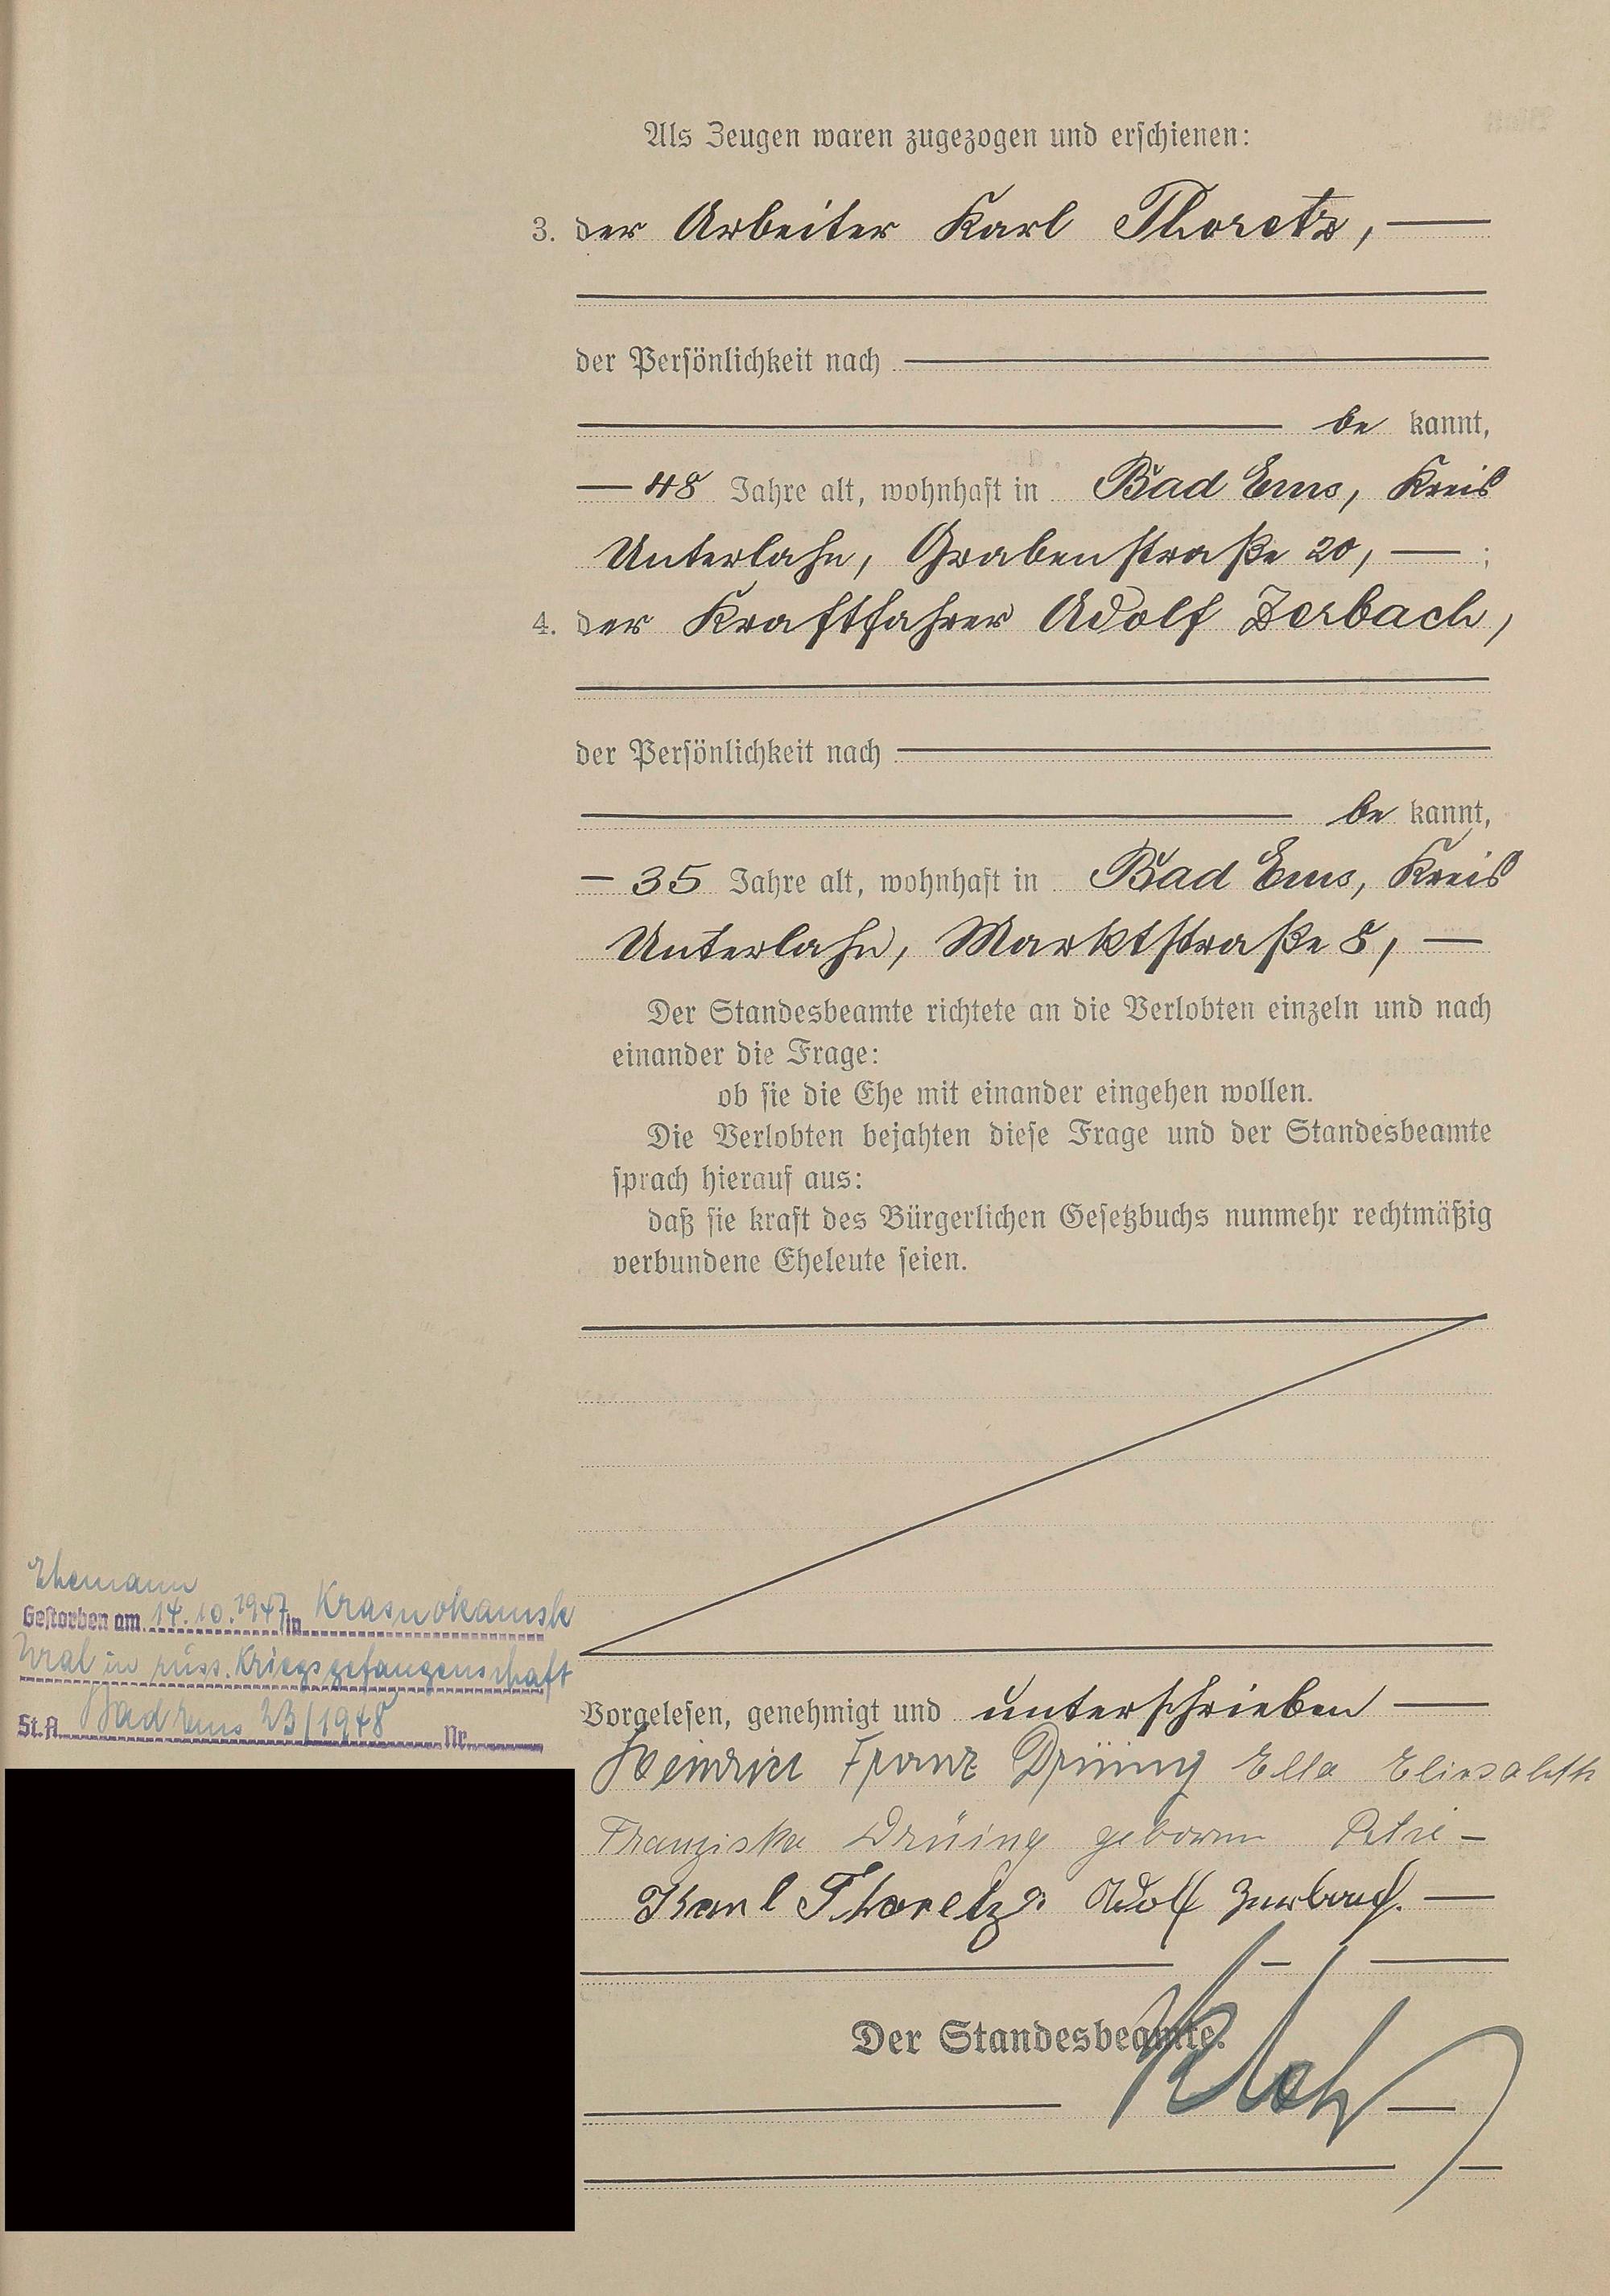 Als Zeugen waren zugezogen und erschienen:
3. der Arbeiter Karl Thoretz,
der Persönlichkeit nach
be kannt,
48 Jahre alt, wohnhaft in Bad Ems, Kreis
Unterlahn, Grabenstraße 20, ;
4. der Kraftfahrer Adolf Zerbach,
der Persönlichkeit nach
be kannt,
35 Jahre alt, wohnhaft in Bad Ems, Kreis
Unterlahn, Marktstraße 8,
Der Standesbeamte richtete an die Verlobten einzeln und nach
einander die Frage:
ob sie die Ehe mit einander eingehen wollen.
Die Verlobten bejahten diese Frage und der Standesbeamte
sprach hierauf aus:
daß sie kraft des Bürgerlichen Gesetzbuchs nunmehr rechtmäßig
verbundene Eheleute seien.
Ehemann
Gestorben am 14.10.1947 in Krasnokamsk
Ural in russ. Kriegsgefangenschaft
St.A. Bad Ems 23/1948 Nr.
Vorgelesen, genehmigt und unterschrieben
Heinrich Franz Drüing Ella Elisabeth
Franziska Drüing geborene Petri
Karl Thoretz. Adolf Zerbach.
Der Standesbeamte.